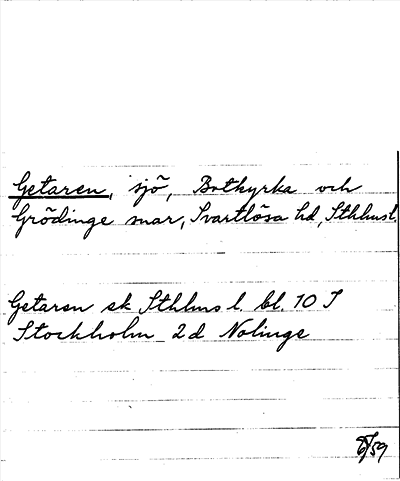 Getaren, sjö, Botkyrka och
Grödinge snar, Svartlösa hd, Sthlms l.
Getaren ek Sthlms l. bl. 10 S
Stockholm 2 d Nolinge
/59